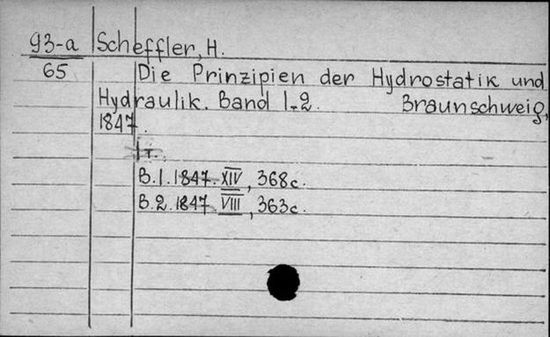 93-a Scheffler, H.
65 Die Prinzipien der Hydrostatik und
Hydraulik. Band 1-2. Braunschweig,
1847.
B.1. 1847. XIV, 368c.
B.2. 1847. VIII, 363c.